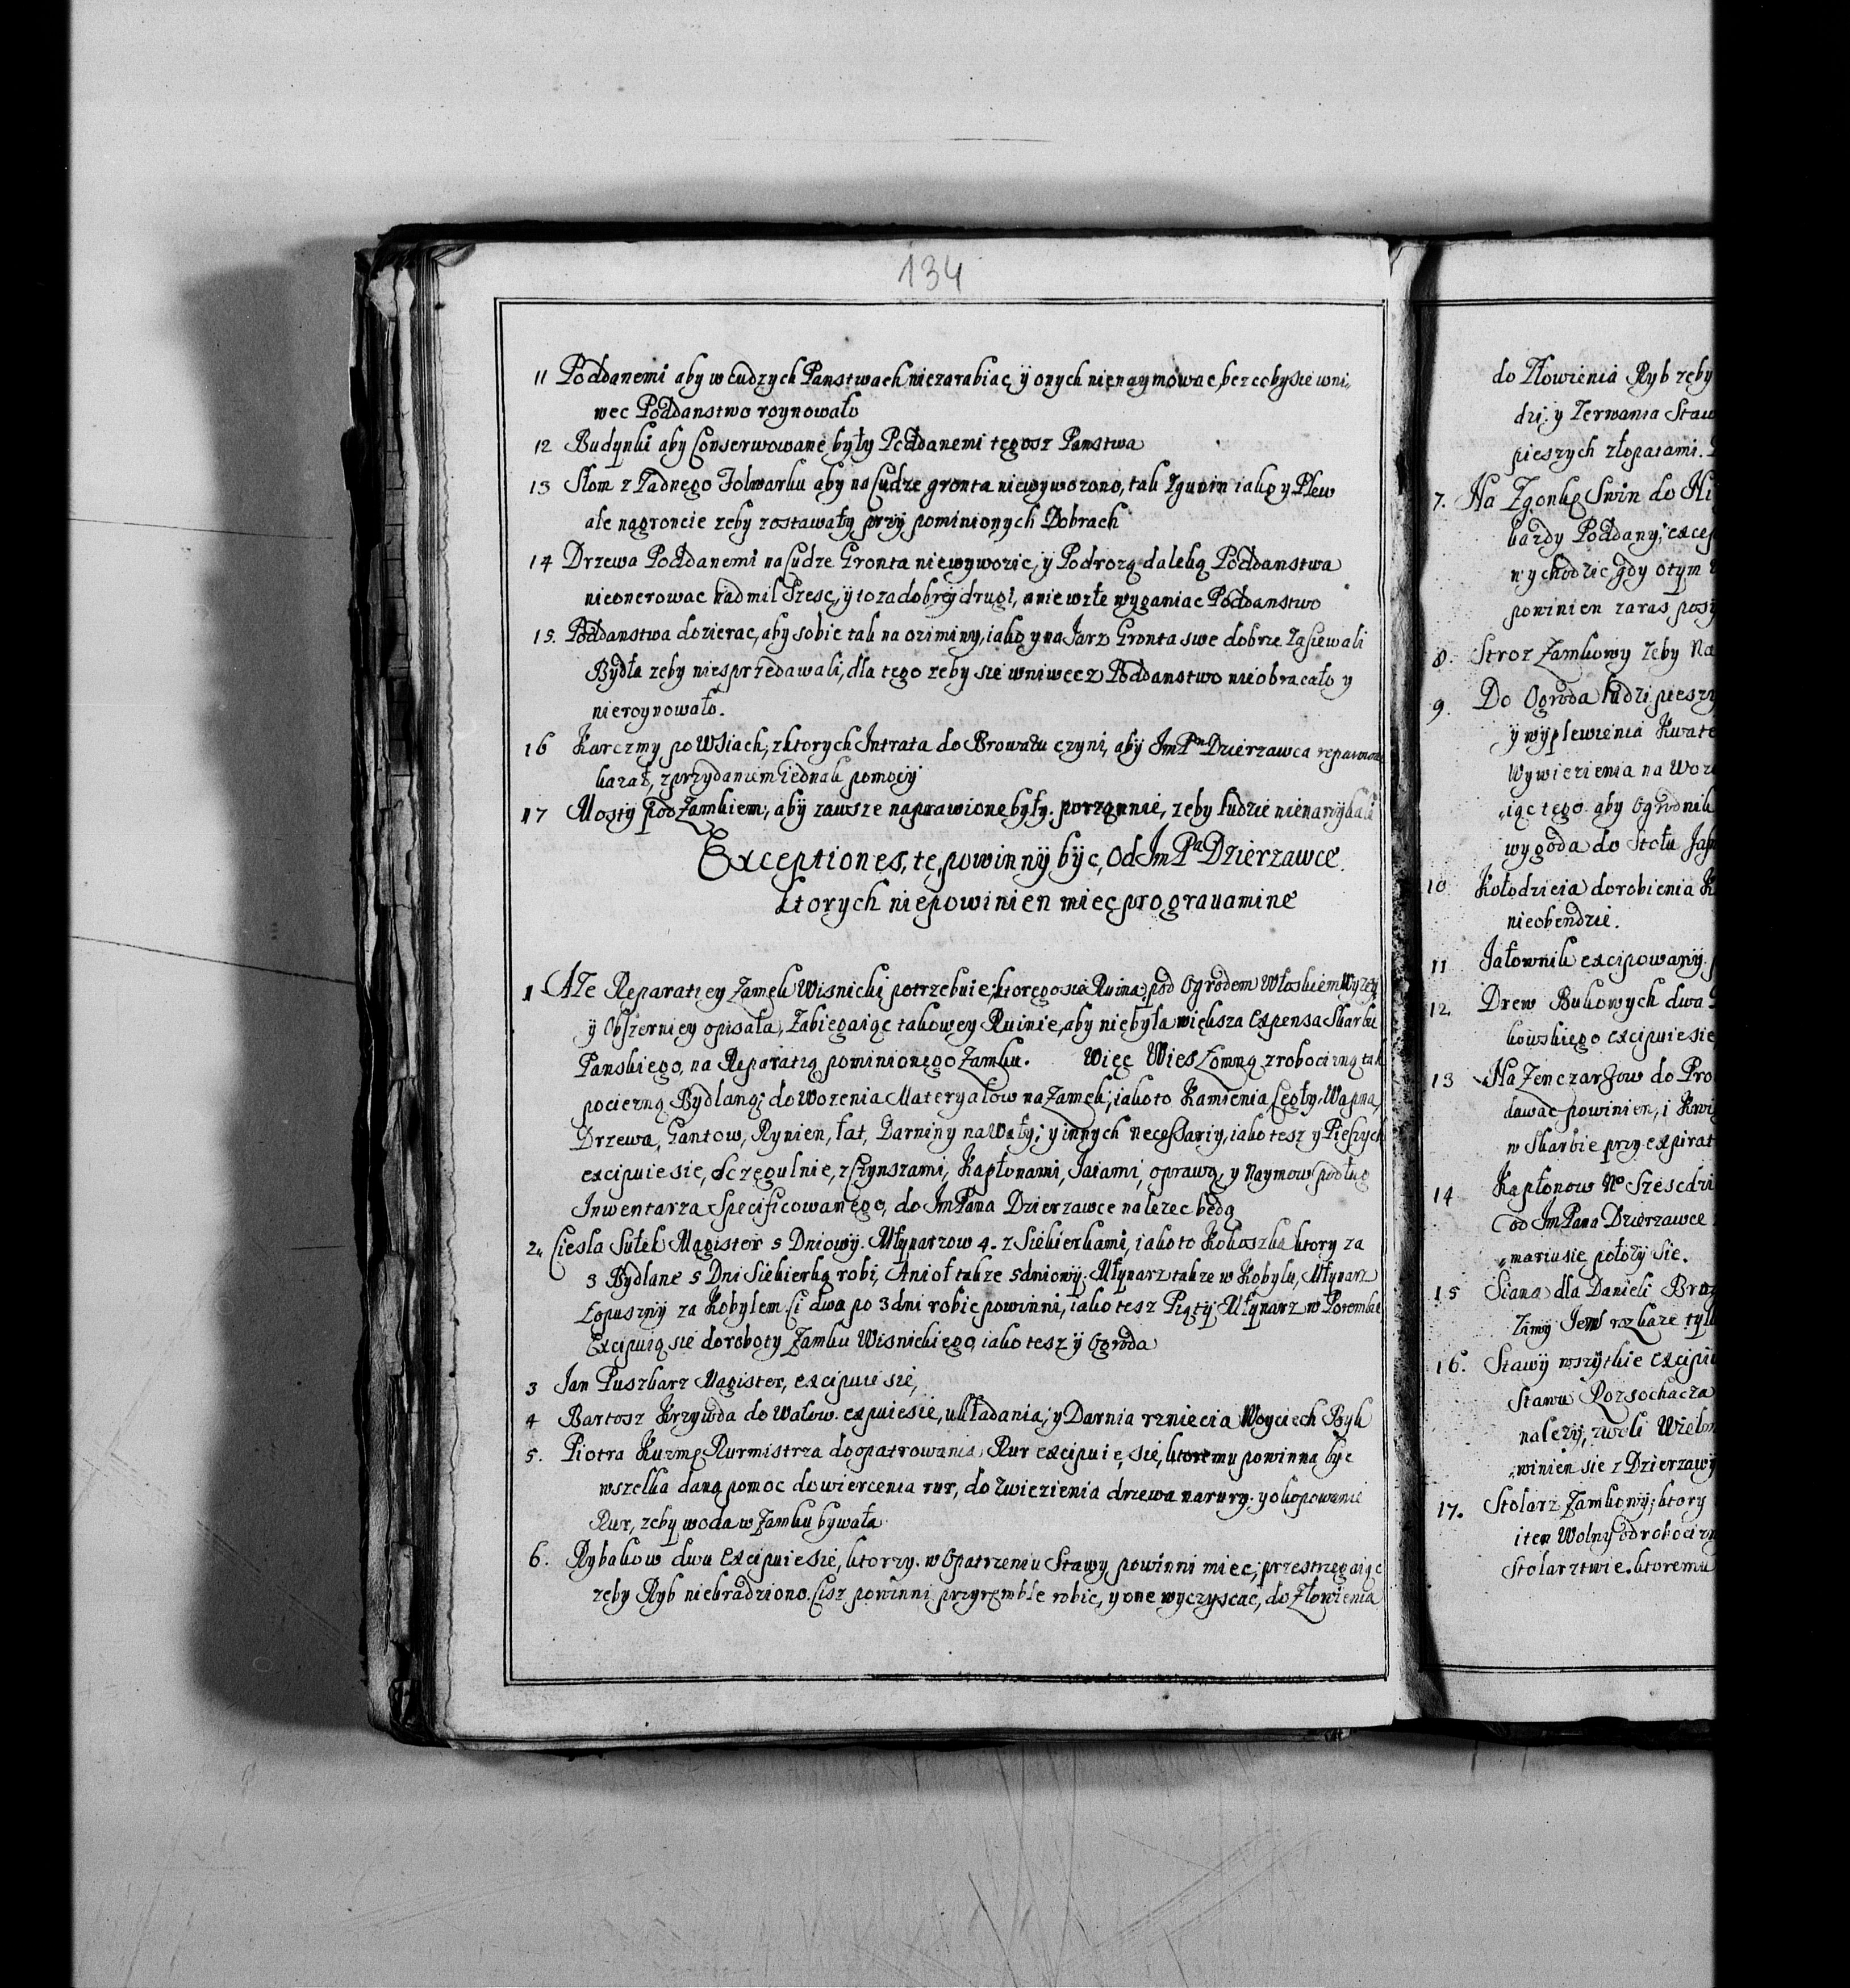 134
11 Poddanemi aby w cudzych Panstwach niezarabiac, ÿ onych nienaymowac, bezcobysie wni„
wec Poddanstwo roynowało
12 Budynki aby Conserwowane były Poddanemi tegosz Panstwa
13 Słom z Zadnego Folwarku aby na Cudze gronta niewywozono, tak Zgunin iako y Plew
ale nagroncie zeby zostawały przy pominionych Dobrach
14 Drzewa Poddanemi na Cudze Gronta niewywozic, ÿ Podrozą daleką Poddanstwa
nieonerowac nadmil Szesc, ÿ to za dobrey drugi, a nie wzłe wyganiac Poddanstwo
15. Poddanstwa dozierac, aby sobie tak na oziminy, iako y na Jarz Gronta swe dobrze Zasiewali
Bydła zeby niesprzedawali, dla tego zeby sie wniwecz Poddanstwo nieobracało y
nieroynowało.
16 Karczmy po Wsiach, zktorych Intrata do Browaru czyni, abÿ Jm Pn Dzierzawca reparowac
kazał, zprzydaniem iednak pomocÿ
17 Mosty pod Zamkiem, abÿ zawsze naprawione były porządnie, zeby ludzie nienarzykali
Exceptiones, te powinnÿ bÿc, Od Jm Pa Dzierzawce
ktorych niepowinien miec pro grauamine
1 AZe Reparatiey Zamek Wisnicki potrzebuie, ktorego sie Ruina, pod Ogrodem Włoskiem Wyzey
ÿ Obszerniey opisała, Zabiegaiąc takowey Ruinie, aby niebyła większa Expensa Skarbu
Panskiego, na Reparatią pominionego Zamku. Więc Wies Łomną zrobocizną tak
pocięzną Bydlaną, do Wozenia Materyałow na Zamek, iako to Kamienia, Cegły, Wapna,
Drzewa, Gantow, Rynien, łat, Darniny na Wały, y innych necessariy, iako tesz y Pieszych
excipuie sie, Sczegulnie, z Czynszami, Kapłonami, Jaiami, oprawą, y Naymow podług
Inwentarza Specificowanego, do Jm Pana Dzierzawce nalezec bedą
2„ Ciesla Sułek Magister 5 Dniowÿ. Młynarzow 4. z Siekierkami, iako to Kokoszka ktory za
3 Bydlane 5 Dni Siekierką robi, Anioł takze 5dniowÿ. Młynarz takze w Kobylu, Młynarz
Łopusznÿ za Kobylem. Ci dwa po 3 dni robic powinni, iako tesz Piątÿ Młynarz w Porembie
Excipuią sie do roboty Zamku Wisnickiego, iako tesz ÿ Ogroda
3 Jan Puszkarz Magister, excipuie sie,
4 Bartosz Krzywda do Wałow. expuiesie, układania, y Darnia rzniecia Woyciech Byk
5. Piotra Kuzmę Rurmistrza do opatrowania Rur excipuie, sie, ktoremu powinna byc
wszelka dana pomoc do wiercenia rur, do zwiezienia drzewa narurÿ. y okopowanie
Rur, zeby woda w Zamku bywała.
6. Rybakow dwu Excipuiesie, ktorzy. w Opatrzeniu Stawy powinni miec, przestrzegaiąc
zeby Ryb niekradziono. Cisz powinni przyrembłe robic, y one wyczyscac, do Złowienia
do Złowienia Ryb zeby
dzi. y Zerwania Staw
pieszych złopatami.
7. Na Zgonkę Swin do
kazdy Poddany,
wychodzic, gdy otym
powinien zaras
8. Stroz Zamkowy Zeby
9. Do Ogroda ludzi
ÿ wyplewienia
Wywiezienia na
„iąc tego. aby Ogrodnik
wygoda do Stołu
10 Kołodzieia dorobienia
nieobendzie.
11 Jałownik excipowanÿ.
12. Drew Bukowych dwa
kowskiego excipuiesie
13 Na Zenczarzow do
dawac powinien, i
w Skarbie przy
14 Kapłonow No Szescdzi
od Jm Pana Dzierzawce
„mariusie połozy sie.
15 Siana dla Danieli
Zimÿ rozkaze
16. Stawÿ wszÿtkie
Stawu Rozsochacza
nalezÿ, zwoli
„winien sie z
17. Stolarz Zamkowÿ, ktory
iten Wolny
Stolarztwie. ktoremu